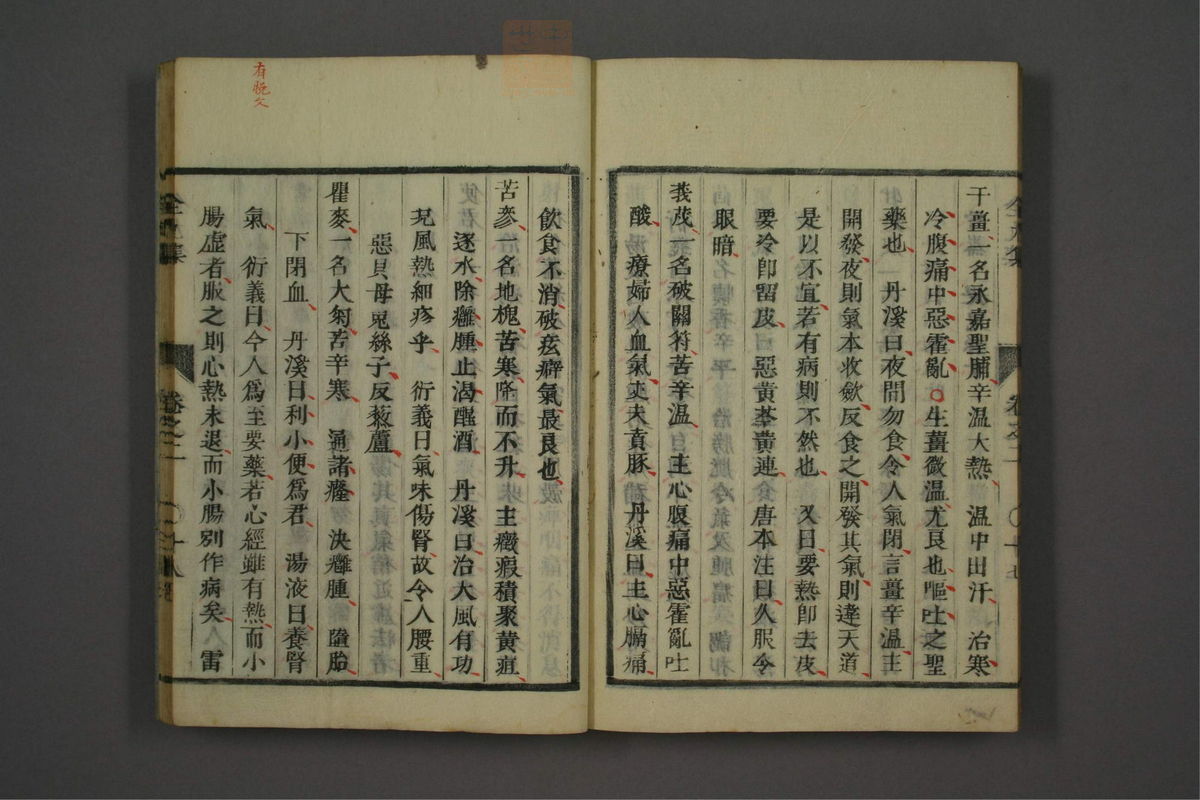 干薑一名永嘉聖脯辛温大熱温中出汗治寒
冷腹痛中惡霍亂○生薑微温尤良也嘔吐之聖
藥也丹溪曰夜間勿食令人氣閉言薑辛温主
開發夜則氣本收斂反食之開發其氣則違天道
是以不宜若有病則不然也又曰要熱卽去皮
要冷卽留皮惡黄芩黄連唐本注曰久服令
眼暗
莪茂一名破關符苦辛温主心腹痛中惡霍亂吐
酸療婦人血氣丈夫賁豚丹溪曰主心膈痛
飲食不消破痃癖氣最良也
苦參一名地槐苦寒降而不升主癥瘕積聚黄疸
逐水除癰腫止渴醒酒丹溪曰治大風有功
况風熱細疹乎衍義曰氣味傷腎故令人腰重
惡貝母兎絲子反藜蘆
瞿麥一名大菊苦辛寒通諸癃決癰腫墮胎
下閉血丹溪曰利小便爲君湯液曰養腎
氣衍義曰今人爲至要藥若心經雖有熱而小
腸虛者服之則心熱未退而小腸别作病矣雷
有脱文
卷之二
十八
卷之二
十七